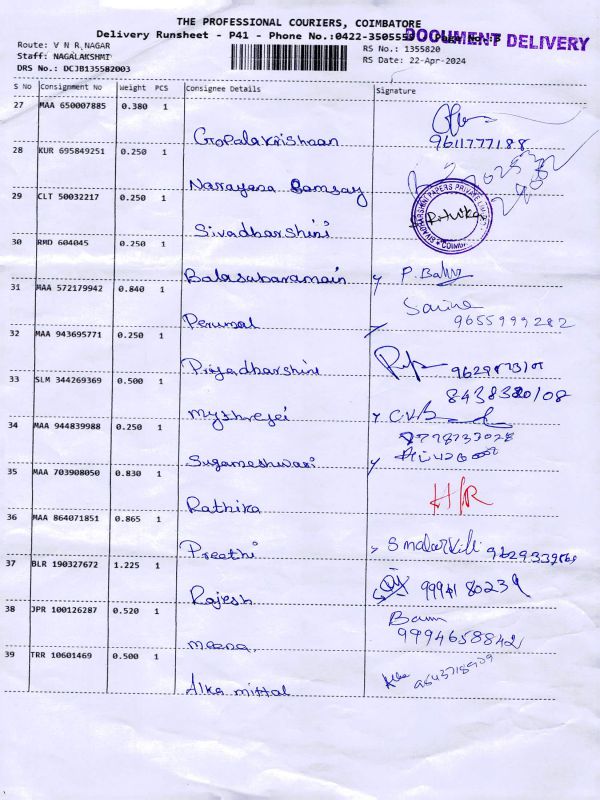 THE PROFESSIONAL COURIERS, COIMBATORE
Delivery Runsheet - P41 - Phone No.:0422-3505555 Page No.:3
DOCUMENT DELIVERY
Route: V N R NAGAR
Staff: NAGALAKSHMI
DRS No.: DCJB135582003
RS No.: 1355820
RS Date: 22-Apr-2024
S No Consignment No Weight PCS Consignee Details Signature
27 MAA 650007885 0.380 1
Gopalakrishnan 9611777188
28 KUR 695849251 0.250 1
Narayana
29 CLT 50032217 0.250 1
Sivadharshini
30 RMD 604045 0.250 1
Balasubaramain P. Balu
31 MAA 572179942 0.840 1
Perumal 9655999282
32 MAA 943695771 0.250 1
Priyadharshini
33 SLM 344269369 0.500 1
Mythreyei C.V.B
34 MAA 944839988 0.250 1
Sugameshwari
35 MAA 703908050 0.830 1
Rathika H/R
36 MAA 864071851 0.865 1
Preethi
37 BLR 190327672 1.225 1
Rajesh
38 JPR 100126287 0.520 1
meena 9994658842
39 TRR 10601469 0.500 1
Alka mittal